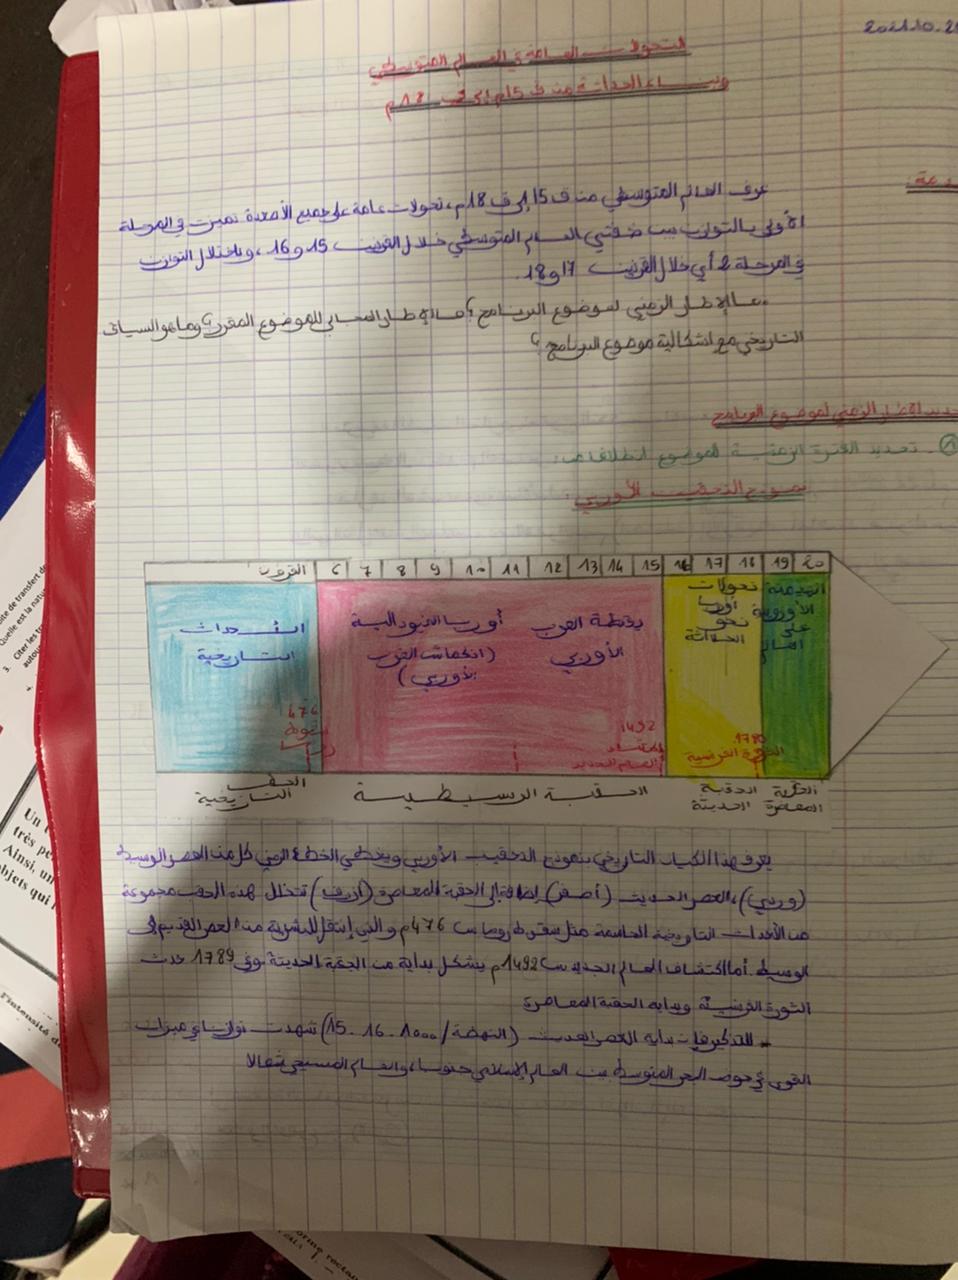 2021.10.2
التحولات العامة في العالم المتوسطي
وبناء الحداثة من ق 15م إلى ق 18م
عرف العالم المتوسطي من ق 15 إلى ق 18م، تحولات عامة على جميع الأصعدة تميزت في المرحلة
الأولى بالتوازن بين ضفتي العالم المتوسطي خلال القرنين 15 و16، وباختلال التوازن
في المرحلة 2 أي خلال القرنين 17 و18.
ما الإطار الزمني لموضوع البرنامج؟ ما الإطار المجالي للموضوع المقرر؟ وما هو السياق
التاريخي مع إشكالية موضوع البرنامج؟
الإطار الزمني لموضوع البرنامج:
1. تحديد الفترة الزمنية للموضوع انطلاقا من:
نموذج التحقيب الأوربي:
القرون 6 7 8 9 10 11 12 13 14 15 16 17 18 19 20
الأحداث
التاريخية
أوربا الفيودالية
(انكماش الغرب
الأوربي)
يقظة الغرب
الأوربي
تحولات
أوربا
نحو
الحداثة
الأوروبية
على
العالم
476
سقوط
روما
1492
اكتشاف
العالم الجديد
1789
الثورة الفرنسية
الحقب
التاريخية
الحقبة الوسيطية
الحقبة
الحديثة
الحقبة
المعاصرة
يعرف هذا الكيان التاريخي بنموذج التحقيب الأوربي ويغطي الخط الزمني كل من العصر الوسيط
(وردي)، العصر الحديث (أصفر) إضافة إلى الحقبة المعاصرة (أزرق) تتخلل هذه الحقب مجموعة
من الأحداث التاريخية الحاسمة مثل سقوط روما سنة 476م والتي إنتقل للبشرية من العصر القديم إلى
الوسيط. أما اكتشاف العالم الجديد سنة 1492م يشكل بداية من الحقبة الحديثة وفي 1789 حدث
الثورة الفرنسية وبداية الحقبة المعاصرة
للتذكير فإن بداية العصر الحديث (النهضة / 1000. 16. 15) شهدت توازنا في ميزان
القوى في حوض البحر المتوسط بين العالم الإسلامي جنوبا، والعالم المسيحي شمالا